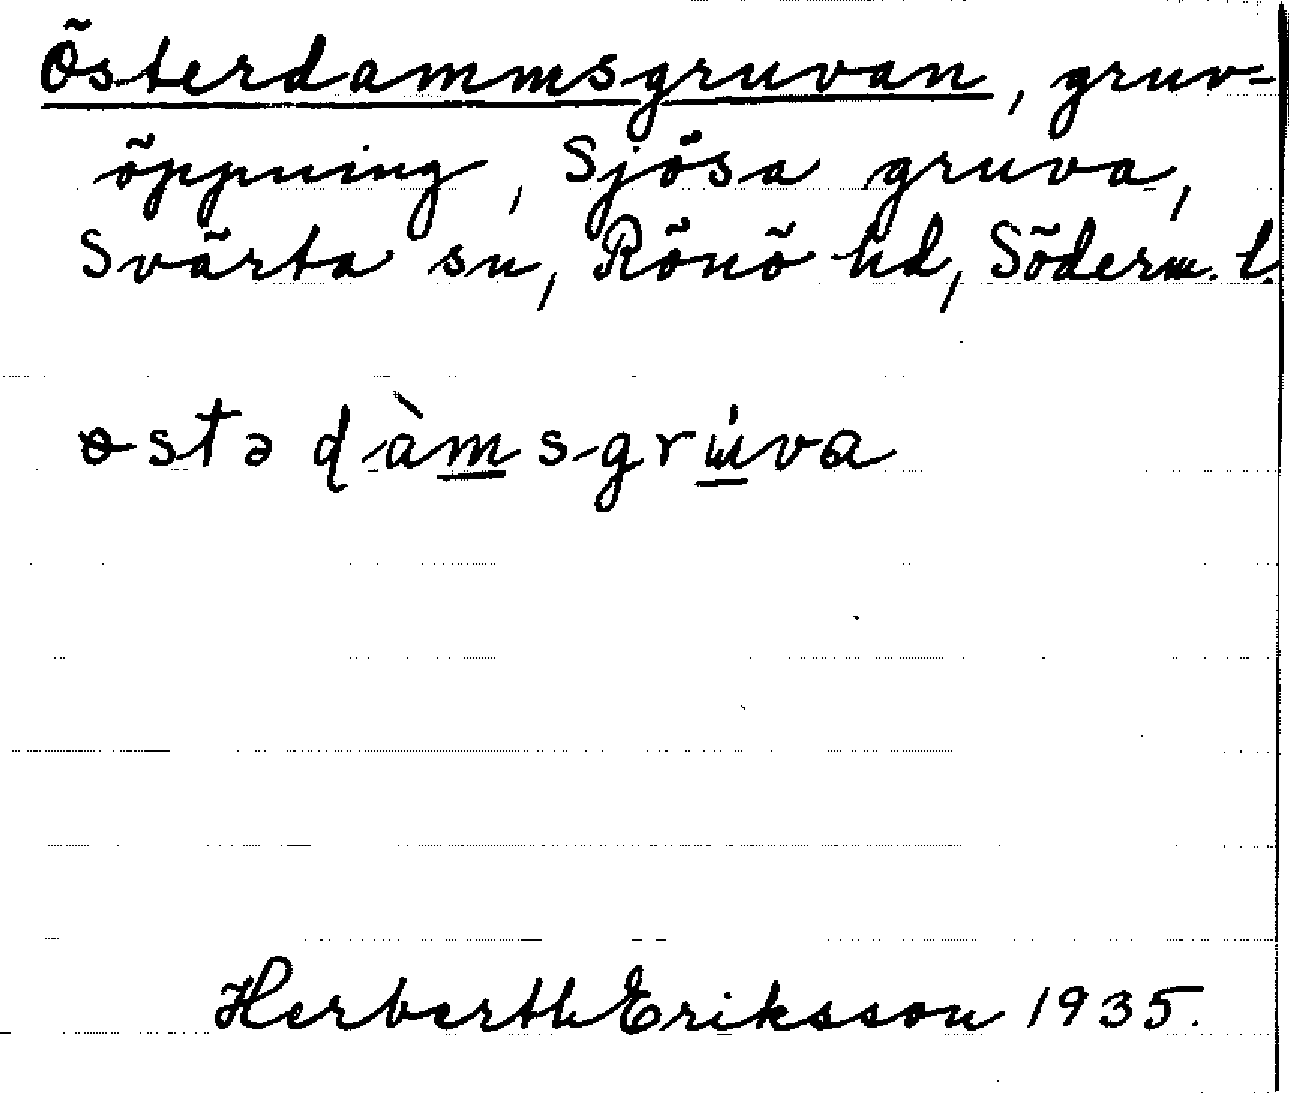 Österdammsgruvan, gruv-
öppning, Sjösa gruva,
Svärta sn, Rönö hd, Söderm. l.
ɵstə ɖàm̲sgru̲̇va
Herberth Eriksson 1935.